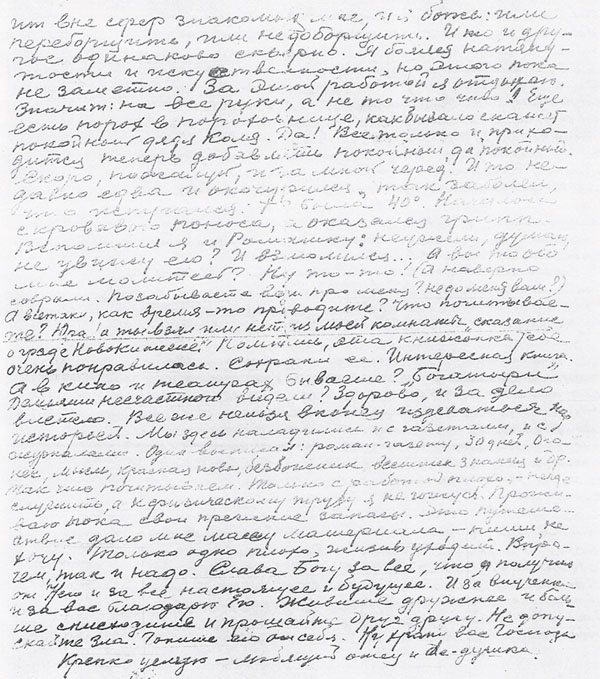 ит вне сфер знакомых мне, и я боюсь: или
переборщить, или недоборщить. И то и дру-
гое одинаково скверно. Я боялся натяну-
тости и искуственности, но этого пока
не заметно. За этой работой я отдыхаю.
Значит: на все руки, а не то что чиво! Еще
есть порох в пороховнице, как бывало скажет
покойный дядя Коля. Да! Все только и прихо-
дится теперь добавлять покойный, да покойный.
Скоро, пожалуй, и за мной черед. И то не-
давно едва и окочурился, так заболел,
что испугался: t° была 40°. Началось
с кровавого поноса, а оказался грипп.
Вспомнил я и Ромашку: неужели, думаю,
не увижу его? И взмолился... А вы то обо
мне молитесь? Ну то-то! (А наверно
соврали. Позабываете вы про меня? не до меня вам?)
А вы там, как время-то проводите? Что почитывае-
те? Юра! а ты взял или нет из моей комнаты "сказание
о граде Новокитеже". Помнишь, эта книжонка тебе
очень понравилась. Сохрани ее. Интересная книга.
А в кино и театрах бываеше? "Богатыри"
Демьяна несчастного видали? Здорово, и за дело
влетело. Все же нельзя вконец издеваться над
историей. Мы здесь наладились и с газетами, и с
журналами. Одних выписали: роман-газету, 30 дней, Ого-
нек, мысль, красная новь, безбожник, вестник знания и др.
Так что почитываем. Только с работой плохо,- негде
служить, а к физическому труду я не гожусь. Прожи-
ваю пока свои прежние запасы. Это путеше-
ствие дало мне массу материала - пиши, не
хочу. Только одно плохо, жизнь уходит. Впро-
чем, так и надо. Слава Богу за все, что я получил
от Него и за все настоящее и будущее. И за внученка
и за вас благодарю Его. Живите дружнее и боль-
ше снисходите и прощайте друг другу. Не допу-
скайте зла. Гоните его от себя. Ну храни вас Господь
Крепко целую - любящий отец и де-душка.